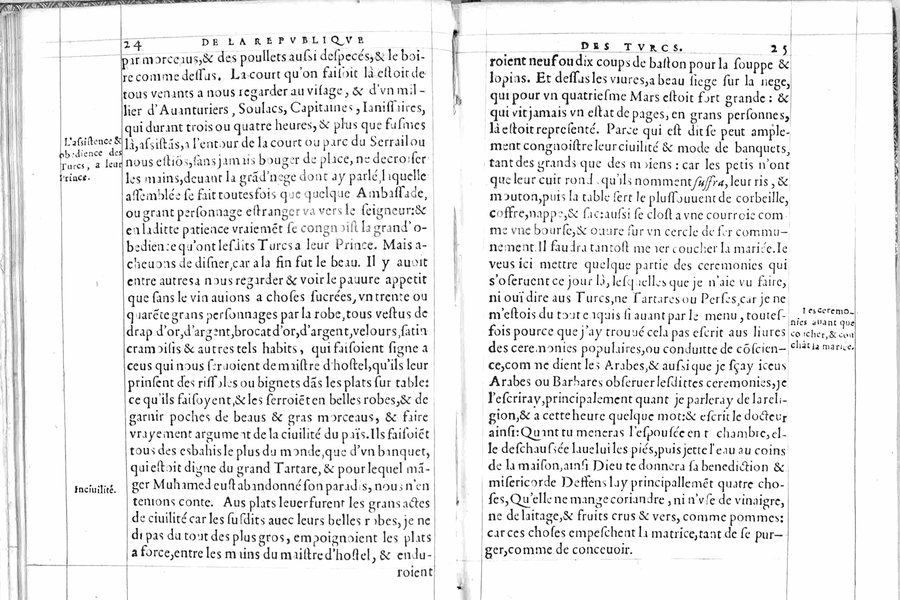 24
DE LA REPVBLIQVE
par morceaus, & des poullets aussi despecés, & le boi-
re comme dessus. La court qu'on faisoit là estoit de
tous venants a nous regarder au visage, & d'vn mil-
lier d'Auanturiers, Soulacs, Capitaines, Ianissaires,
qui durant trois ou quatre heures, & plus que fusmes
là, assistãs, a l'entour de la court ou parc du Serrail ou
nous estiõs, sans jamais bouger de place, ne decroiser
les mains, deuant la grãd'nege dont ay parlé, laquelle
assemblée se fait toutesfois que quelque Ambassade,
ou grant personnage estranger va vers le seigneur: &
en laditte patience vraiemẽt se congnoist la grand' o-
bedience qu'ont lesdits Turcs a leur Prince. Mais a-
cheuons de disner, car a la fin fut le beau. Il y auoit
entre autres a nous regarder & voir le pauure appetit
que sans le vin auions a choses sucrées, vn trente ou
quarẽte grans personnages par la robe, tous vestus de
drap d'or, d'argent, brocat d'or, d'argent, velours, satin
cramoisis & autres tels habits, qui faisoient signe a
ceus qui nous seruoient de maistre d'hostel, qu'ils leur
prinsent des rissoles ou bignets dãs les plats sur table:
ce qu'ils faisoyent, & les serroiẽt en belles robes, & de
garnir poches de beaus & gras morceaus, & faire
vrayement argument de la ciuilité du païs. Ils faisoiẽt
tous des esbahis le plus du monde, que d'vn banquet,
qui estoit digne du grand Tartare, & pour lequel mã-
ger Muhamed eust abandonné son paradis, nous n'en
tenions conte. Aus plats leuer furent les grans actes
de ciuilité car les susdits auec leurs belles robes, je ne
di pas du tout des plus gros, empoignoient les plats
a force, entre les mains du maistre d'hostel, & endu-
roient
L'assistence &
obedience des
Turcs, a leur
Prince.
Inciuilité.
DES TVRCS.
25
roient neuf ou dix coups de baston pour la souppe &
lopins. Et dessus les viures, a beau siege sur la nege,
qui pour vn quatriesme Mars estoit fort grande: &
qui vit jamais vn estat de pages, en grans personnes,
là estoit representé. Parce qui est dit se peut ample-
ment congnoistre leur ciuilité & mode de banquets,
tant des grands que des moiens: car les petis n'ont
que leur cuir rond, qu'ils nomment suffra, leur ris, &
mouton, puis la table sert le plussouuent de corbeille,
coffre, nappe, & sac: aussi se clost a vne courroie com
me vne bourse, & ouure sur vn cercle de fer commu-
nement. Il faudra tantost mener coucher la mariée. Ie
veus ici mettre quelque partie des ceremonies qui
s'oseruent ce jour là, lesquelles que je n'aie vu faire,
ni ouï dire aus Turcs, ne Tartares ou Perses, car je ne
m'estois du tout enquis si auant par le menu, toutes-
fois pource que j'ay trouué cela pas escrit aus liures
des ceremonies populaires, ou conduitte de cõscien-
ce, com me dient les Arabes, & aussi que je sçay iceus
Arabes ou Barbares obseruer lesdittes ceremonies, je
l'escriray, principalement quant je parleray de la reli-
gion, & a cette heure quelque mot: & escrit le docteur
ainsi: Quant tu meneras l'espousée en t chambre, el-
le deschaussée laue lui les piés, puis jette l'eau au coins
de la maison, ainsi Dieu te donnera sa benediction &
misericorde Deffens lay principallemẽt quatre cho-
ses, Qu'elle ne mange coriandre, ni n'vse de vinaigre,
ne de laitage, & fruits crus & vers, comme pommes:
car ces choses empeschent la matrice, tant de se pur-
ger, comme de conceuoir.
Les ceremo-
nies auant que
coucher, & cou
chãt la mariée.